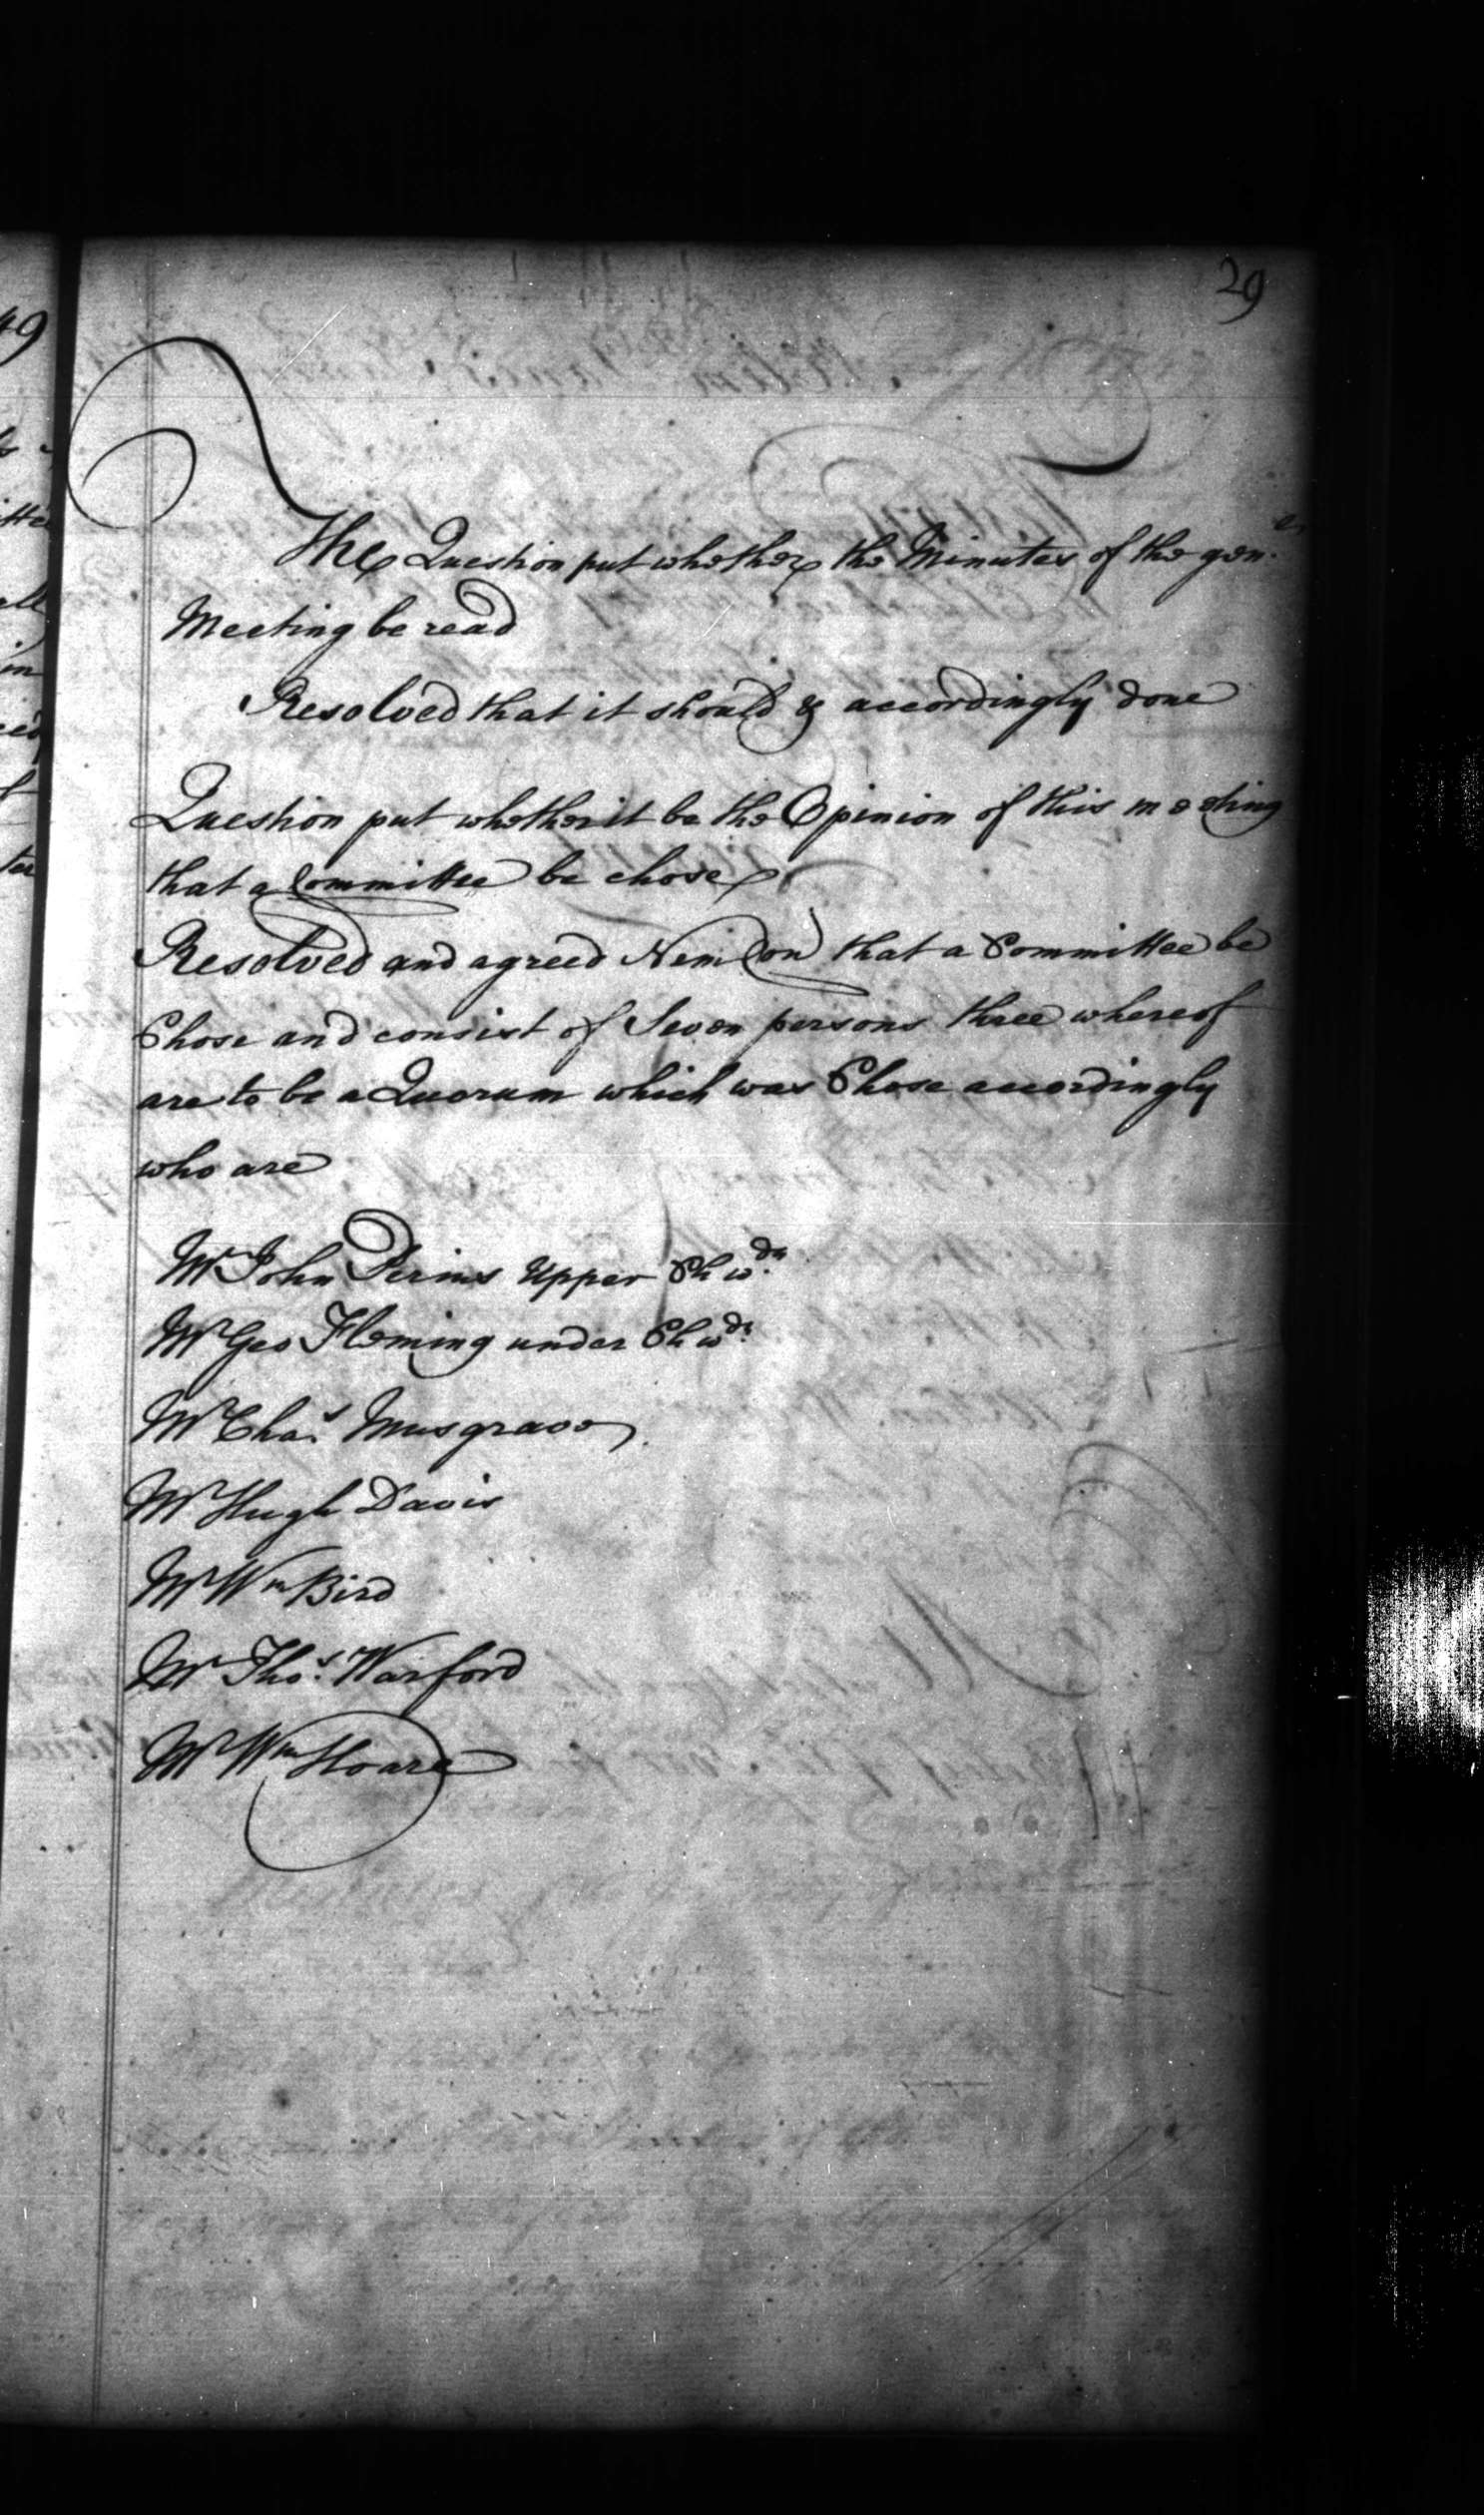 29
The Question put whether the Minutes of the gen.
Meeting be read
Resolved that it should & accordingly done
Question put whether it be the Opinion of this meeting
that a Committee be chose
Resolved and agreed Nem Con that a Committee be
Chose and consist of Seven persons three whereof
are to be a Quorum which was Chose accordingly
who are
Mr John Perins Upper Ch wdn
Mr Geo Fleming under Ch wdn
Mr Chas Musgrave
Mr Hugh Davis
Mr Wm Bird
Mr Thos Warford
Mr Wm Hoare